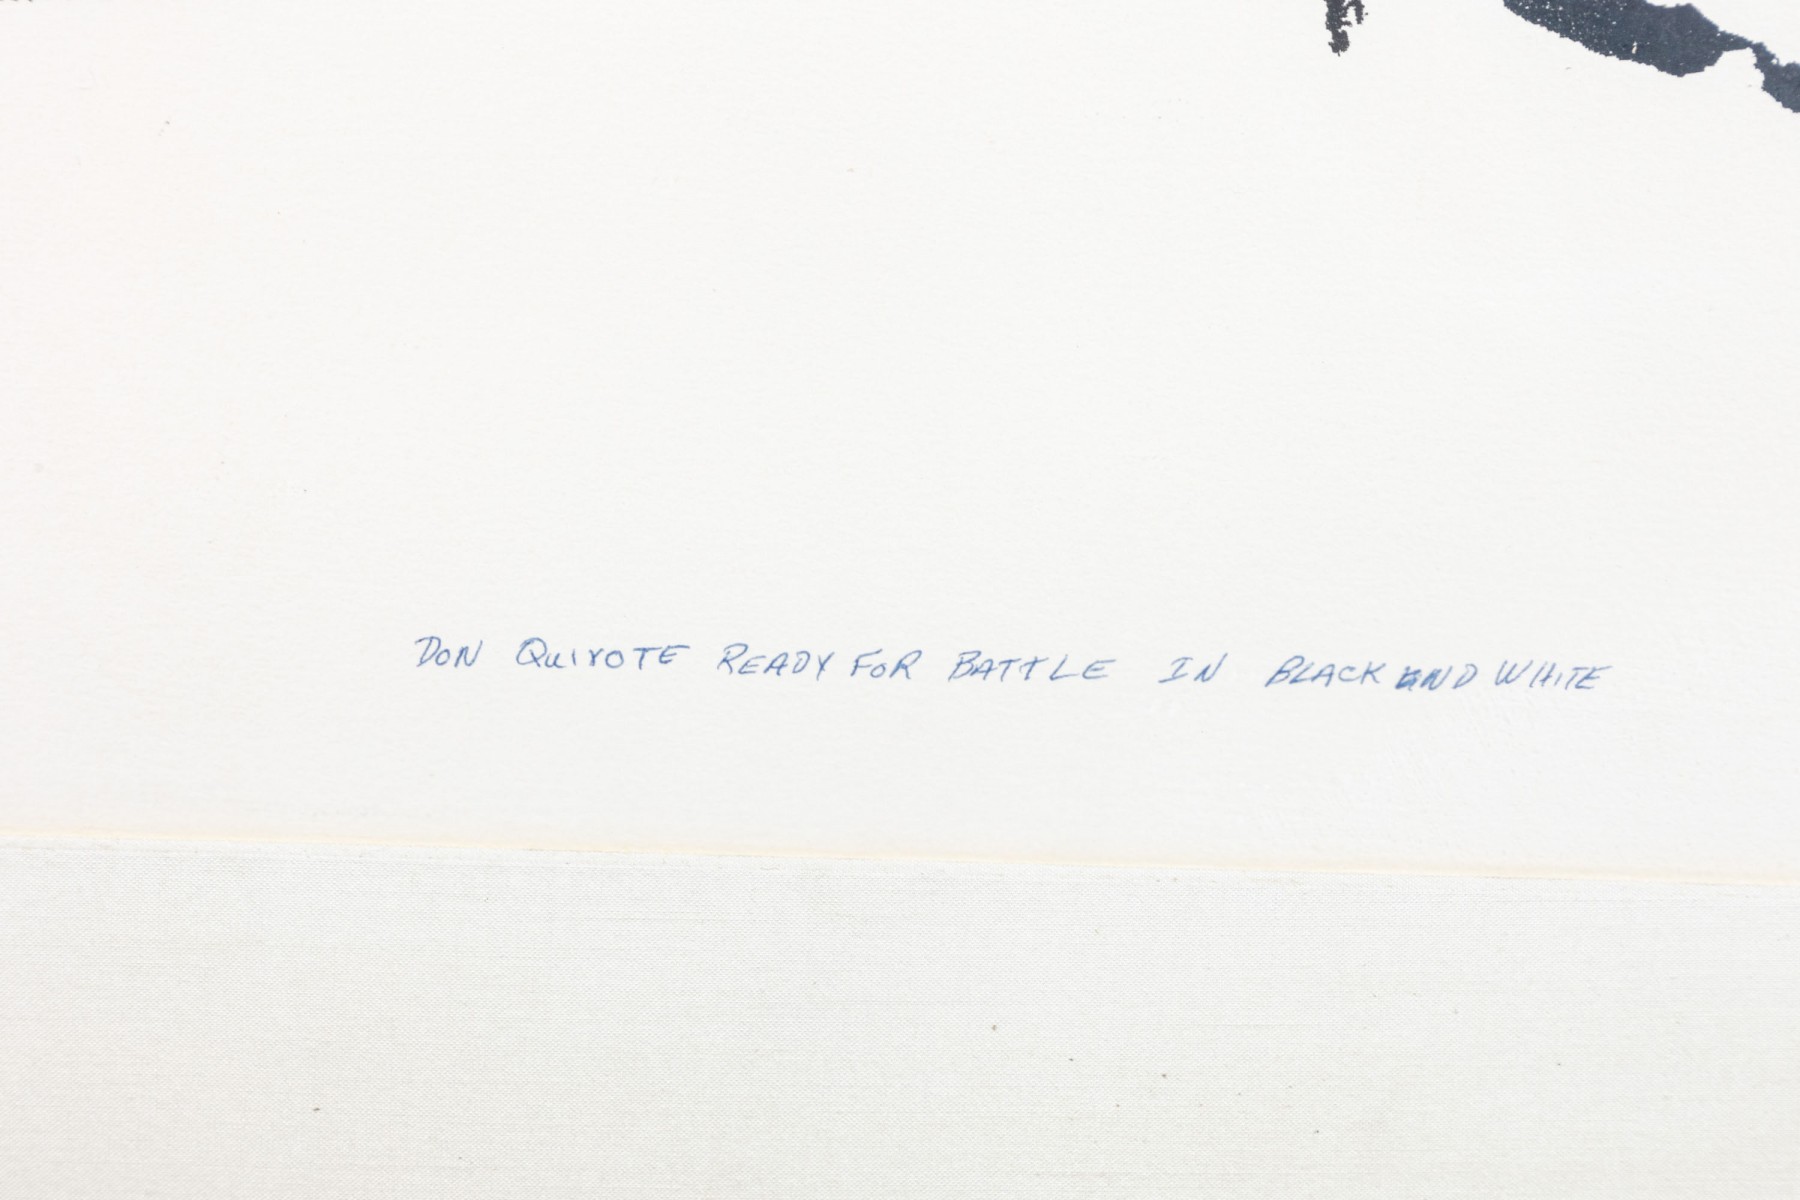 DON QUIXOTE READY FOR BATTLE IN BLACK AND WHITE